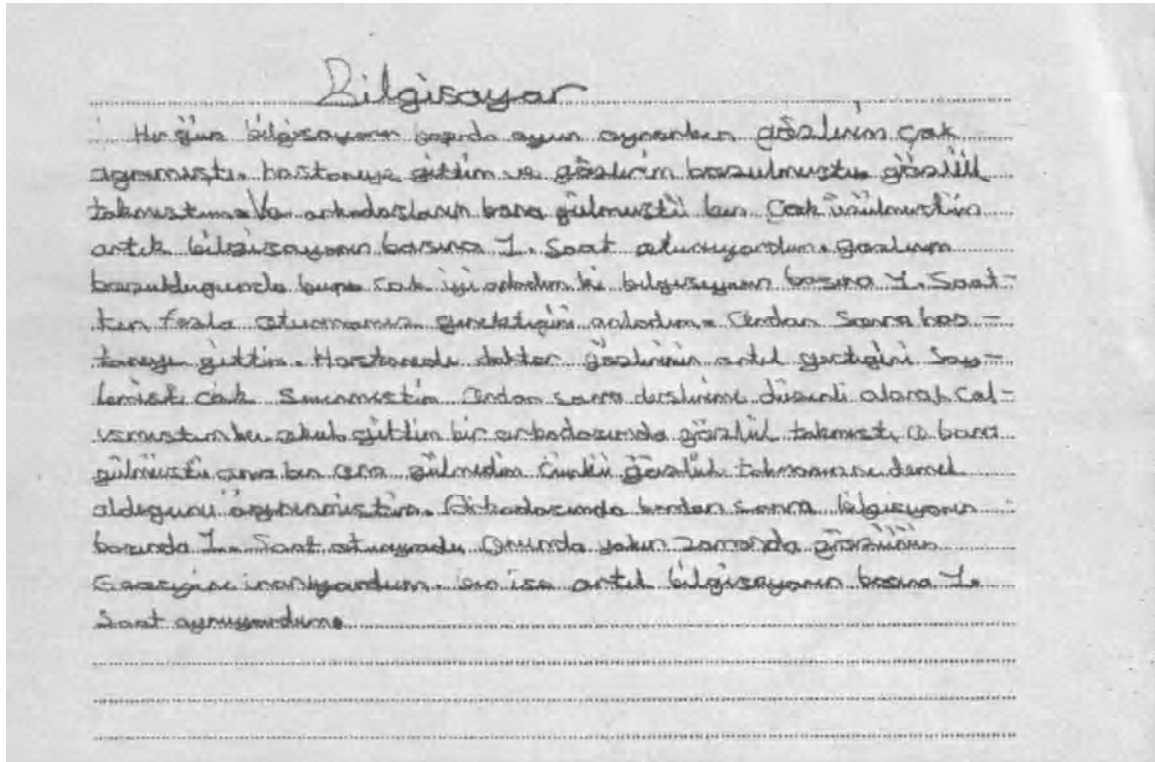 Bilgisayar
Her gün bilgisayarın başında oyun oynarken gözlerim çok
agrımıştı. hastaneye gittim ve gözlerim bozulmuştu gözlük
takmıştım. Ve arkadaşların bana gülmüştü ben çok üzülmüştüm
artık bilgisayarın basına 1. Saat oturuyordum. gözlerim
bozuldugunda bunu çok iyi anladım ki bilgisayarın basına 1. Saat-
ten fazla oturmamız gerektigini anladım. Ondan Sonra has-
taneye gittim. Hastanede doktor gözlerinin artık geçtigini Söy-
lemişti çok Sevinmiştim Ondan sonra derslerime düzenli olarak Çal-
ışmıştım bu okula gittim bir arkadasımda gözlük takmıştı o bana
gülmüştü ama ben ona gülmedim Çünkü gözlük takmanın ne demek
oldugunu ögrenmiştim. Arkadasımda benden sonra bilgisyarın
basında 1. Saat oturuyordu Onunda yakın zamanda gözünün
Geçeçigine inanıyordum. ben ise artık bilgisayarın basına 1.
Saat oynuyordum.